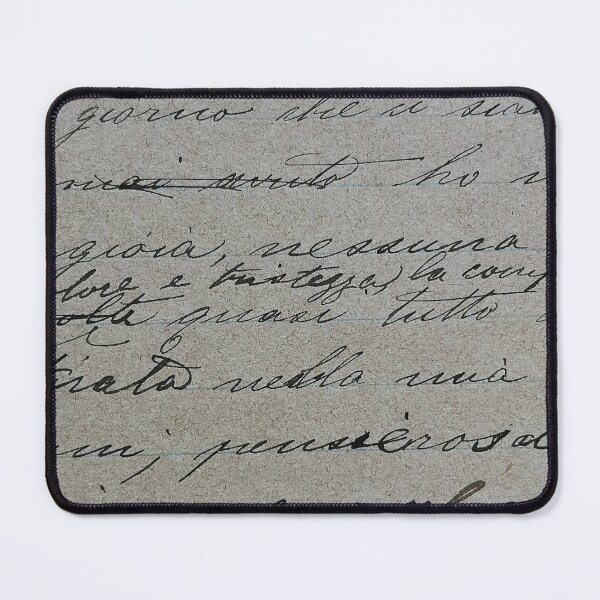 giorno che ci sia
mai avuto ho
gioia, nessuna
lore e tristezza, la com
quasi tutto
trata nella mia
mi, pensierosa